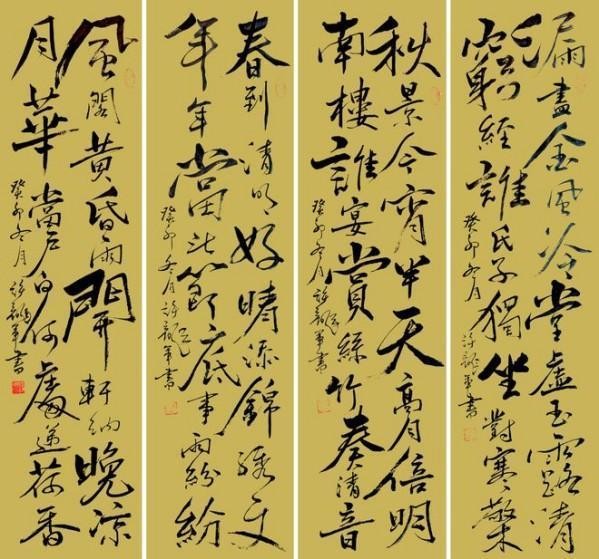 漏盡金風冷堂虛玉露清
窮經誰氏子獨坐對寒檠
癸卯冬月
書
秋景今宵半天高月倍明
南樓誰宴賞絲竹奏清音
癸卯冬月
書
春到清明好晴添錦繡文
年年當此節底事雨紛紛
癸卯冬月
書
風閣黃昏雨開軒納晚涼
月華當戶白何處遞荷香
癸卯冬月
書